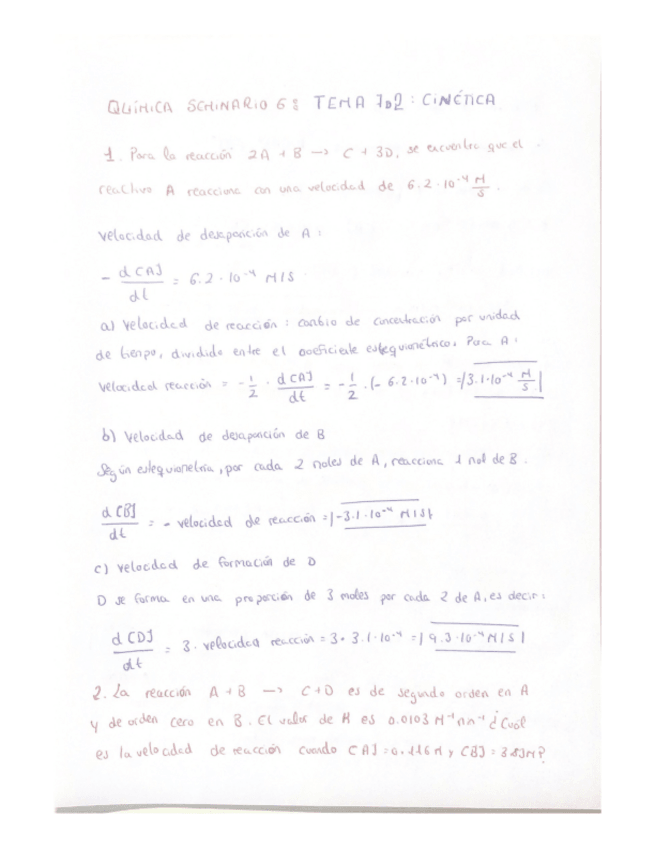 QUÍMICA SEMINARIO 6: TEMA 1D2: CINÉTICA
1. Para la reacción 2A + B → C + 3D, se encuentra que el
reactivo A reacciona con una velocidad de 6.2·10⁻⁴ M/S.
Velocidad de desaparición de A:
- d[A]/dt = 6.2·10⁻⁴ M/S
a) Velocidad de reacción: cambio de concentración por unidad
de tiempo, dividido entre el coeficiente estequiométrico. Para A:
Velocidad reacción = -1/2 · d[A]/dt = -1/2 · (-6.2·10⁻⁴) = |3.1·10⁻⁴ M/S|
b) Velocidad de desaparición de B
Según estequiometría, por cada 2 moles de A, reacciona 1 mol de B.
d[B]/dt = - velocidad de reacción = |-3.1·10⁻⁴ M/S|
c) Velocidad de formación de D
D se forma en una proporción de 3 moles por cada 2 de A, es decir:
d[D]/dt = 3· velocidad reacción = 3· 3.1·10⁻⁴ = |9.3·10⁻⁴ M/S|
2. La reacción A + B → C + D es de segundo orden en A
y de orden cero en B. El valor de K es 0.0103 M⁻¹ min⁻¹ ¿Cuál
es la velocidad de reacción cuando [A] = 0.116 M y [B] = 3.83M?